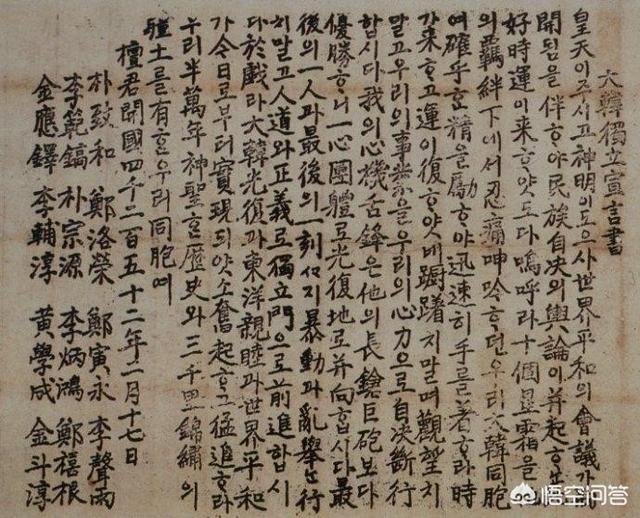 大韓獨立宣言書
皇天이주시고神明이도으사世界平和의會議가
開됨을伴하야民族自决의輿論이幷起하난
好時運이来하얏도다嗚呼라十個星霜을
의羈絆下에서忍痛呻吟하던우리大韓同胞
여確乎한精을勵하야迅速히手를著하라時
가来하고運이復하얏네躕躇치말며觀望치
말고우리의事業을우리의心力으로自决斷行
합시다我의心機舌鋒은他의長鎗巨砲보다
優勝하니一心團體로光復地로幷向합시다最
後의一人과最後의一刻사지暴動과亂擧난行
치말고人道와正義로獨立門으로前進합시
다於戲라大韓光復과東洋親睦과世界平和
가今日로부터實現되얏소奮起하고猛進하라
우리半萬年神聖한歷史와三千里錦繡의
疆土를有한우리同胞여
檀君開國四千二百五十二年二月十七日
朴致和 鄭洛榮 鄭寅永 李聲雨
李範鎬 朴宗源 李炳鴻 鄭禧根
金應鐸 李輔淳 黃學成 金斗淳
悟空问答